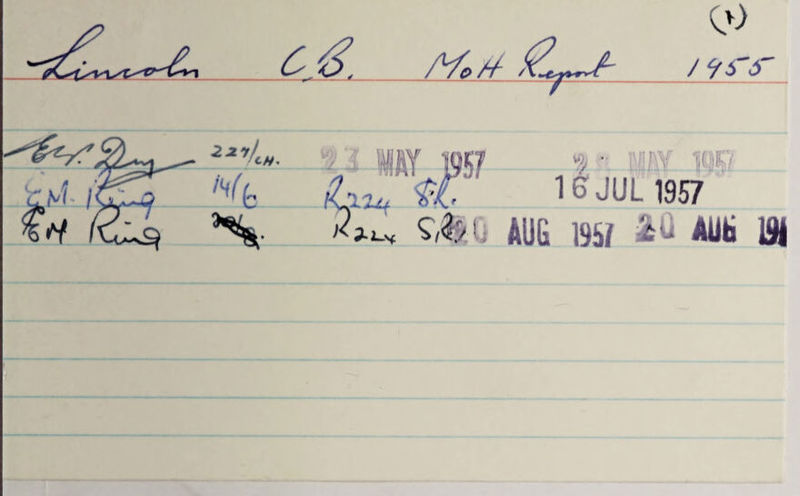 (1)
Lincoln C.B. MoH Report 1955
227/CH. 23 MAY 1957 28 MAY 1957
E.M. Ring 14/6 R224 S.R. 16 JUL 1957
EM Ring R224 S.R. 20 AUG 1957 20 AUG 19